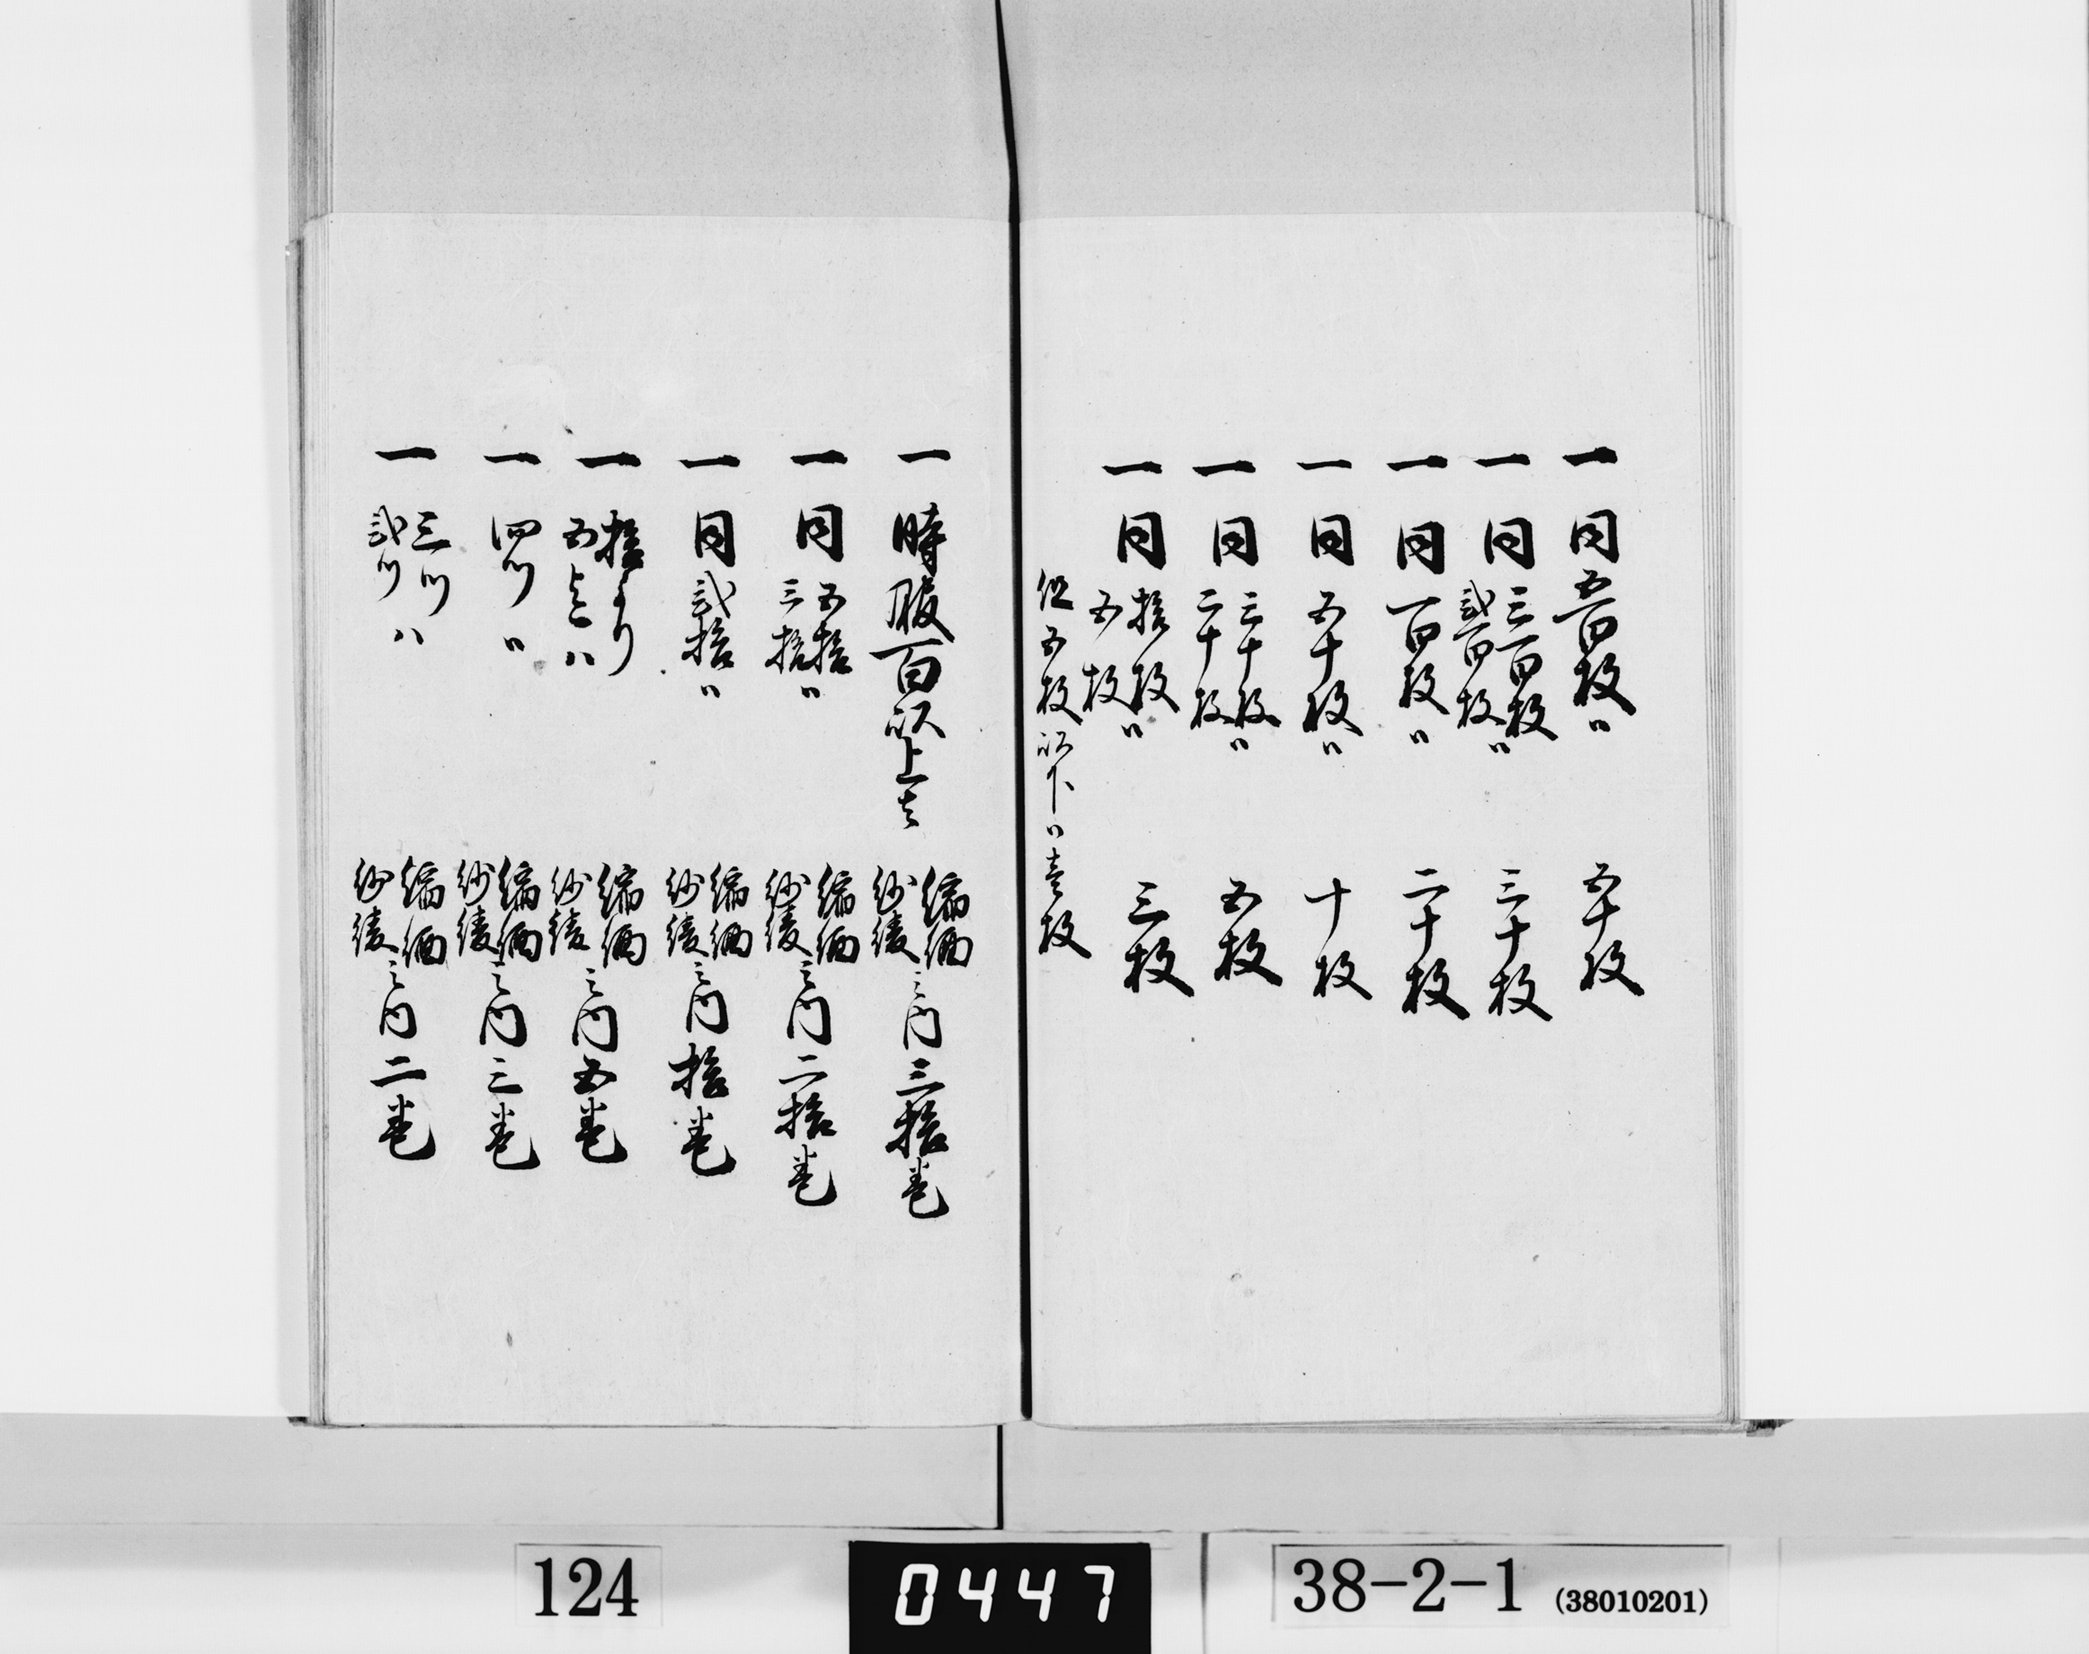 一 同五百枚〃 五十枚
一 同三百枚弐百枚〃 三十枚
一 同百枚〃 二十枚
一 同五十枚〃 十枚
一 同三十枚二十枚〃 五枚
一 同拾枚五枚〃 三枚
但五枚以下〃壱枚
一 時服百以上者 縮緬紗綾之内三拾巻
一 同五拾三拾〃 縮緬紗綾之内二拾巻
一 同弐拾〃 縮緬紗綾之内拾巻
一 拾より五迄ハ 縮緬紗綾之内五巻
一 四ツ〃 縮緬紗綾之内三巻
一 三ツ弐ツハ 縮緬紗綾之内二巻
124
0447
38-2-1 (38010201)